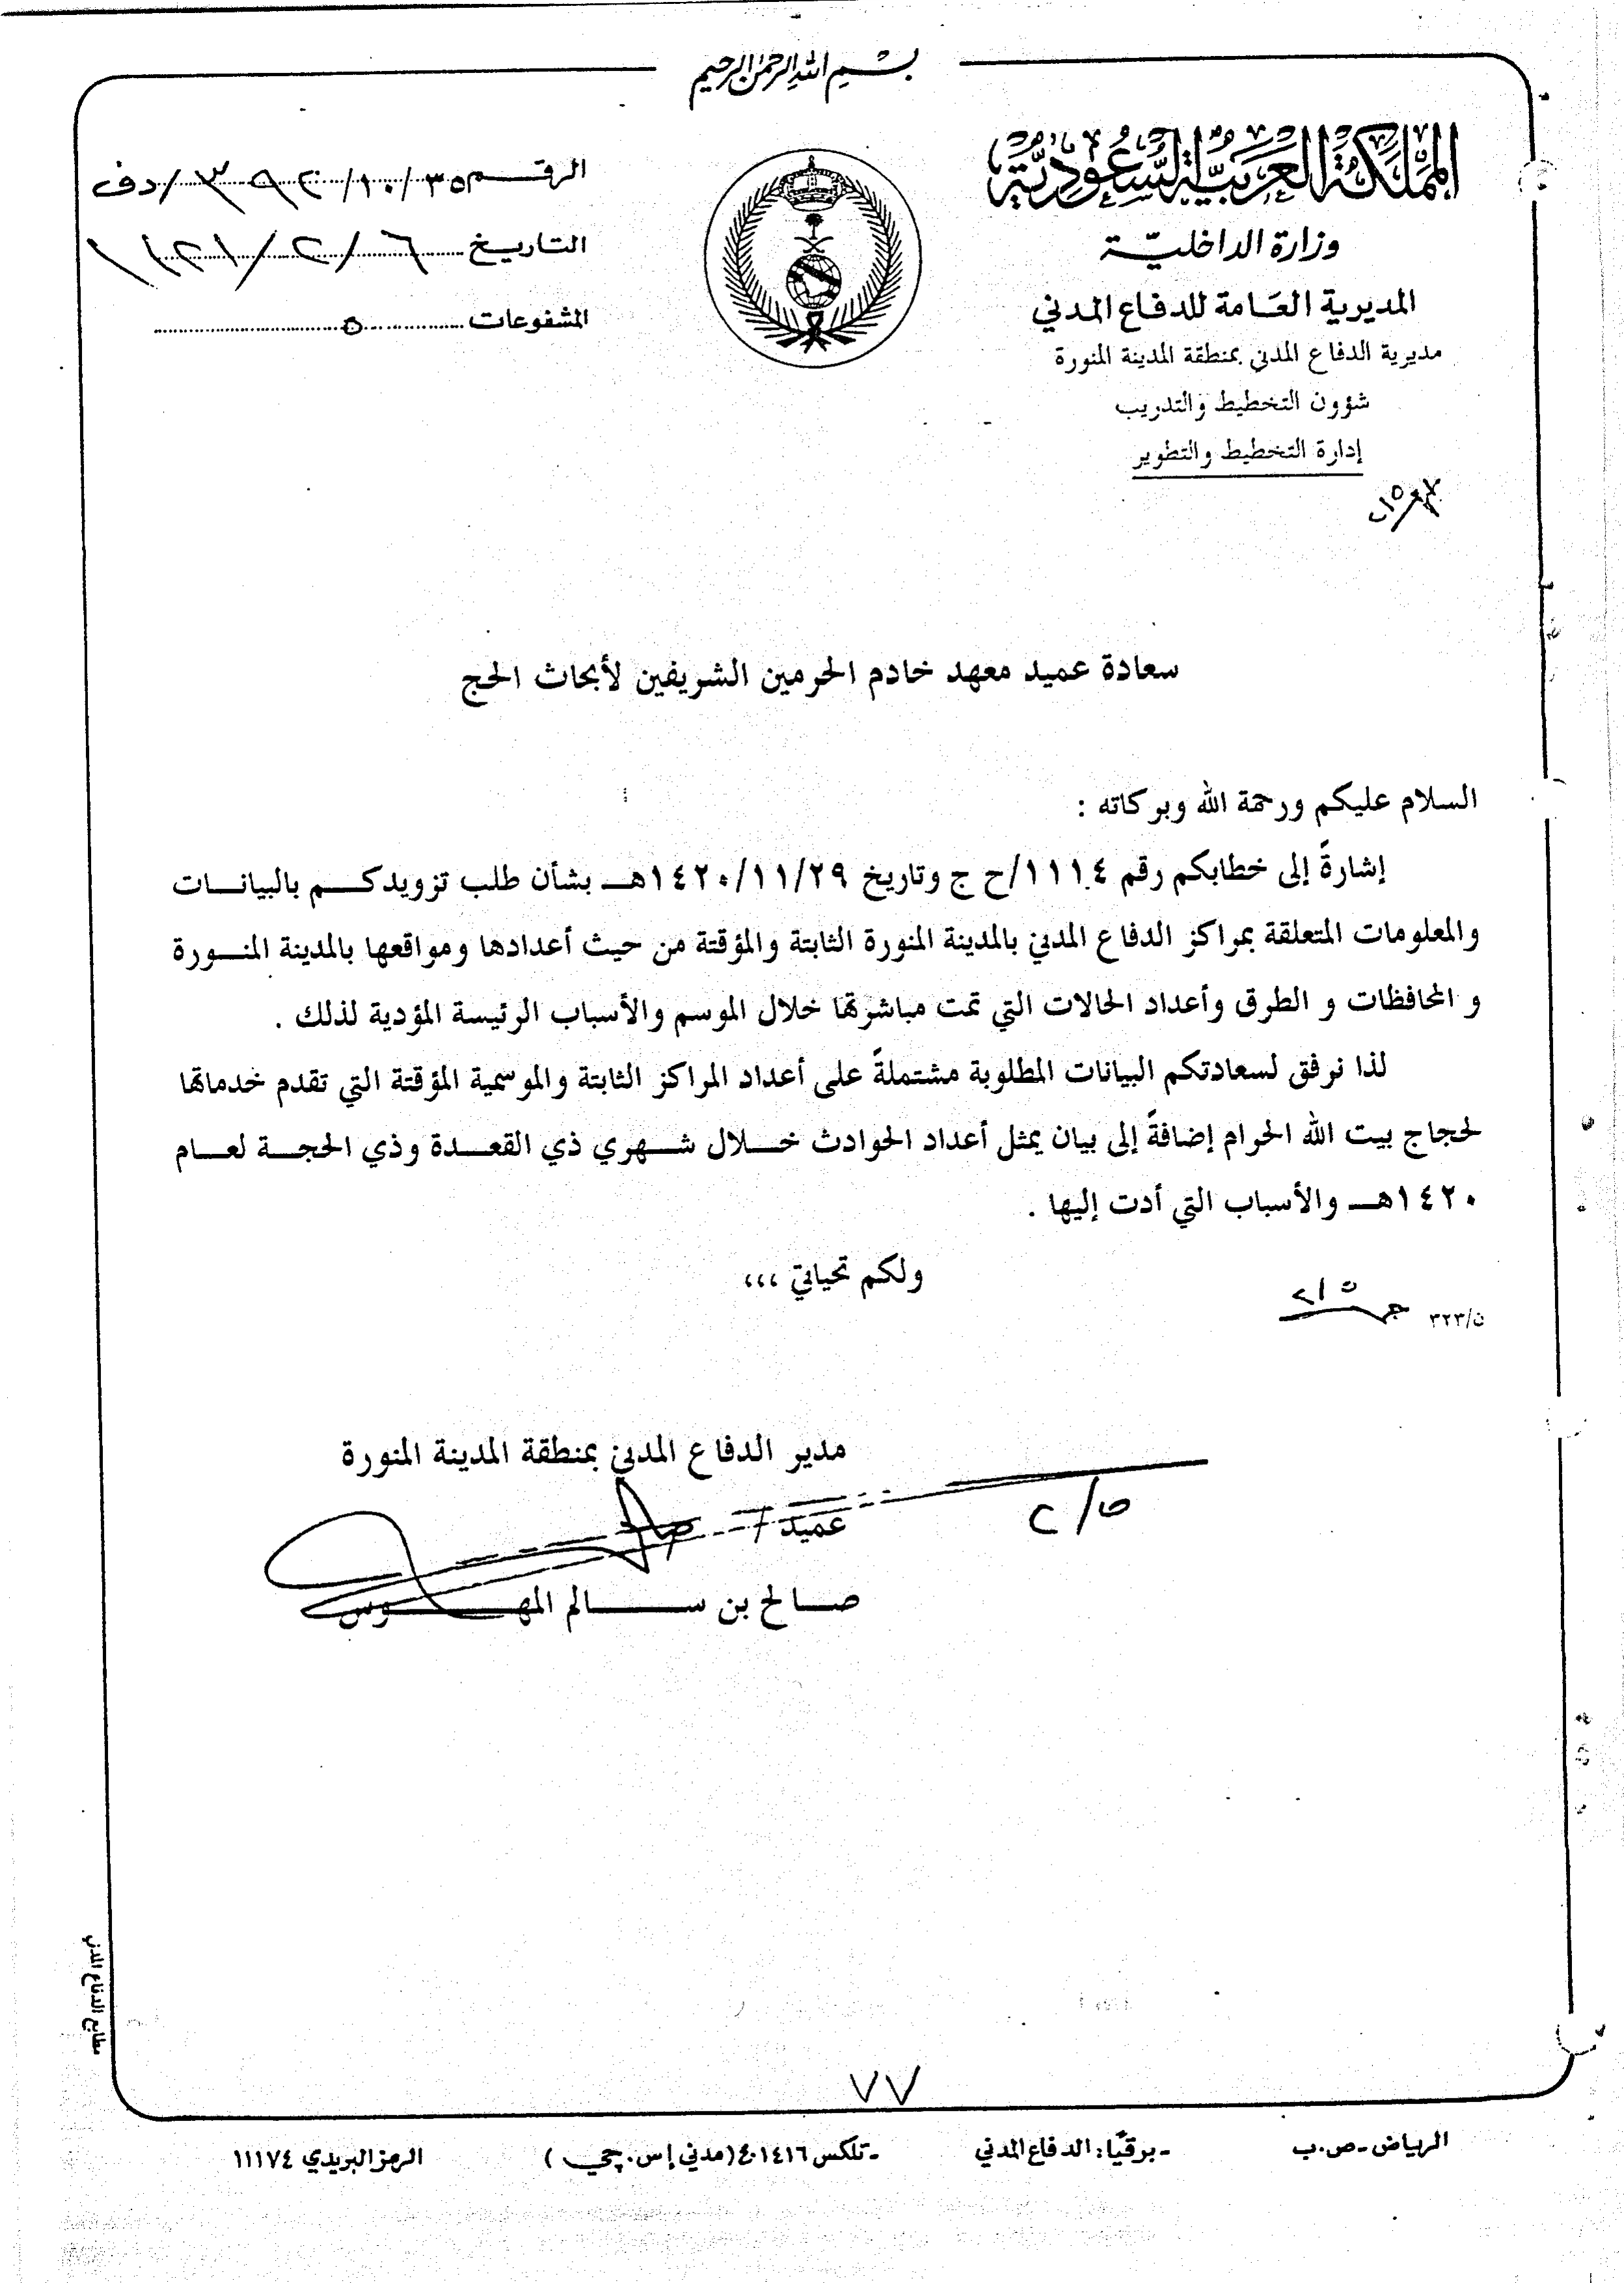 بسم الله الرحمن الرحيم
المملكة العربية السعودية
وزارة الداخلية
المديرية العامة للدفاع المدني
مديرية الدفاع المدني بمنطقة المدينة المنورة
شؤون التخطيط والتدريب
إدارة التخطيط والتطوير
الرقم ٣٥/١٠/ /دف
التاريخ ٦/٢/
المشفوعات ٥
سعادة عميد معهد خادم الحرمين الشريفين لأبحاث الحج
السلام عليكم ورحمة الله وبركاته :
إشارةً إلى خطابكم رقم ١١١٤/ح ج وتاريخ ١٤٢٠/١١/٢٩هـ بشأن طلب تزويدكم بالبيانات
والمعلومات المتعلقة بمراكز الدفاع المدني بالمدينة المنورة الثابتة والمؤقتة من حيث أعدادها ومواقعها بالمدينة المنورة
و المحافظات و الطرق وأعداد الحالات التي تمت مباشرتها خلال الموسم والأسباب الرئيسة المؤدية لذلك .
لذا نرفق لسعادتكم البيانات المطلوبة مشتملةً على أعداد المراكز الثابتة والموسمية المؤقتة التي تقدم خدماتها
لحجاج بيت الله الحرام إضافةً إلى بيان يمثل أعداد الحوادث خلال شهري ذي القعدة وذي الحجة لعام
١٤٢٠هـ والأسباب التي أدت إليها .
ولكم تحياتي ،،،
ن/٣٢٣
مدير الدفاع المدني بمنطقة المدينة المنورة
عميد /
صالح بن سالم المهوس
مطابع الدفاع المدني
٧٧
الرياض - ص.ب - برقيًا: الدفاع المدني - تلكس ٤٠١٤١٦ (مدني إس. جي) الرمز البريدي ١١١٧٤